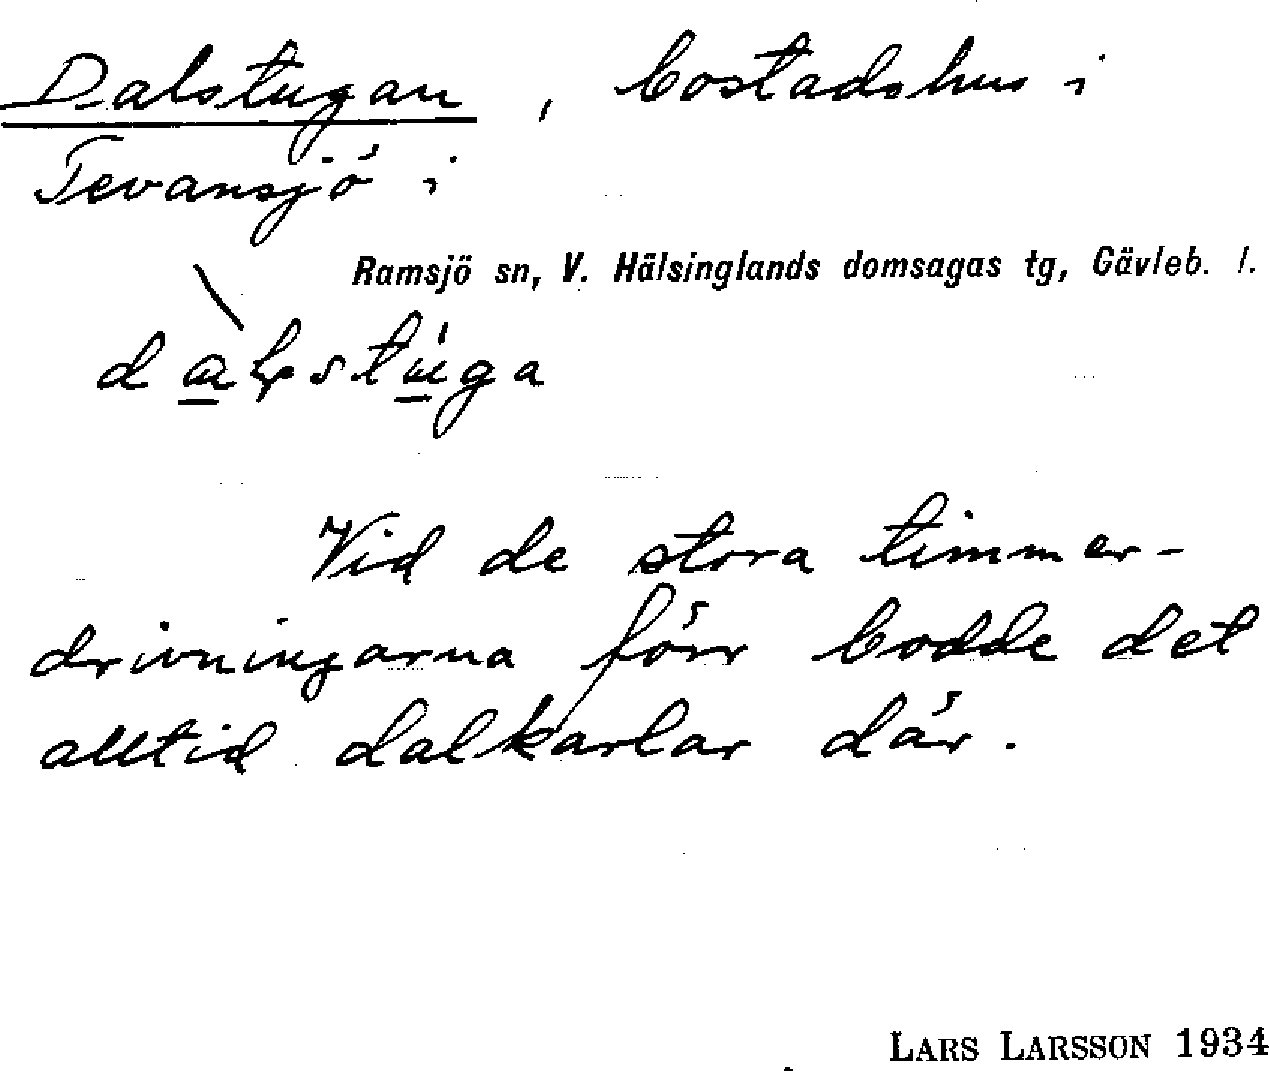 Dalstugan, bostadshus i
Tevansjö i
Ramsjö sn, V. Hälsinglands domsagas tg, Gävleb. l.
Vid de stora timmer-
drivningarna förr bodde det
alltid dalkarlar där.
LARS LARSSON 1934